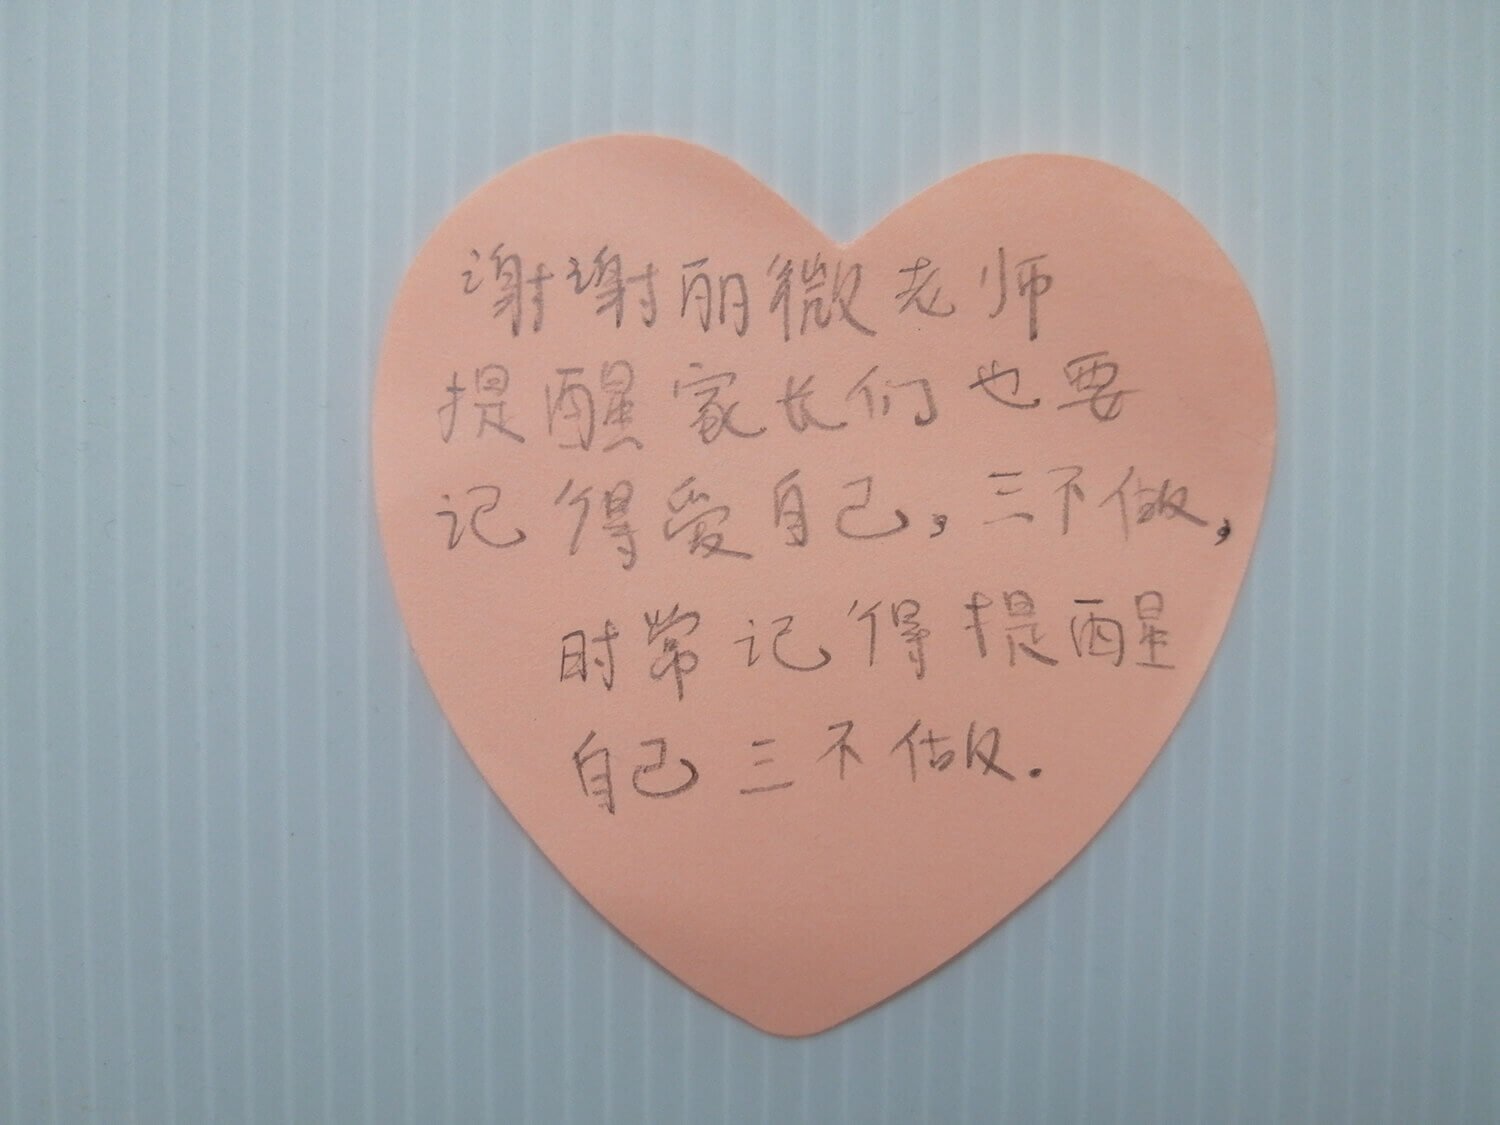 谢谢丽微老师
提醒家长们也要
记得爱自己，三不做，
时常记得提醒
自己三不做.